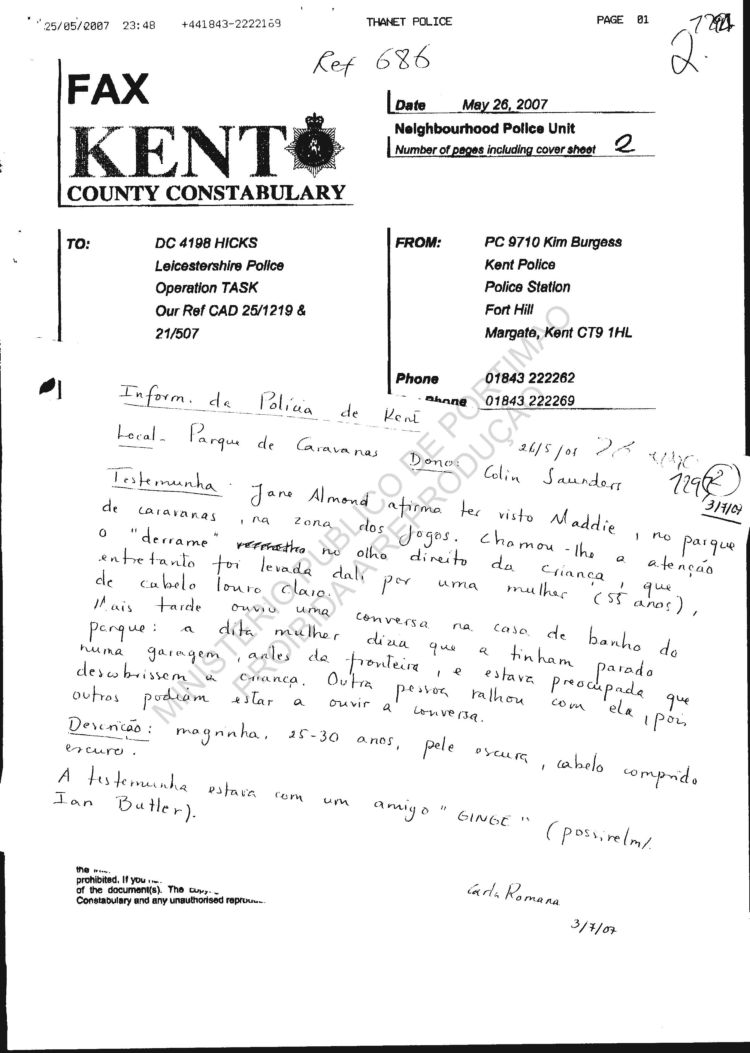 25/05/2007 23:48 +441843-2222169 THANET POLICE PAGE 01
2.
Ref 686
FAX
KENT
COUNTY CONSTABULARY
Date May 26, 2007
Neighbourhood Police Unit
Number of pages including cover sheet 2
TO: DC 4198 HICKS
Leicestershire Police
Operation TASK
Our Ref CAD 25/1219 &
21/507
FROM: PC 9710 Kim Burgess
Kent Police
Police Station
Fort Hill
Margate, Kent CT9 1HL
Phone 01843 222262
Phone 01843 222269
Inform. da Polícia de Kent
26/5/07
Local - Parque de Caravanas Dono: Colin Saunders
2
3/7/07
Testemunha - Jane Almond afirma ter visto Maddie, no parque
de caravanas, na zona dos Jogos. Chamou-lhe a atenção
o "derrame" no olho direito da criança, que
entretanto foi levada dali por uma mulher (55 anos),
de cabelo louro claro.
Mais tarde ouviu uma conversa na casa de banho do
parque: a dita mulher dizia que a tinham parado
numa garagem, antes da fronteira, e estava preocupada que
descobrissem a criança. Outra pessoa ralhou com ela, pois
outros podiam estar a ouvir a conversa.
Descrição: magrinha, 25-30 anos, pele escura, cabelo comprido
escuro.
A testemunha estava com um amigo "GINGE" (possivelm/
Ian Butler).
the
prohibited. If you
of the document(s). The
Constabulary and any unauthorised
Carla Romana
3/7/07
MINISTÉRIO PUBLICO DE PORTIMAO
PROIBIDA A REPRODUÇÃO